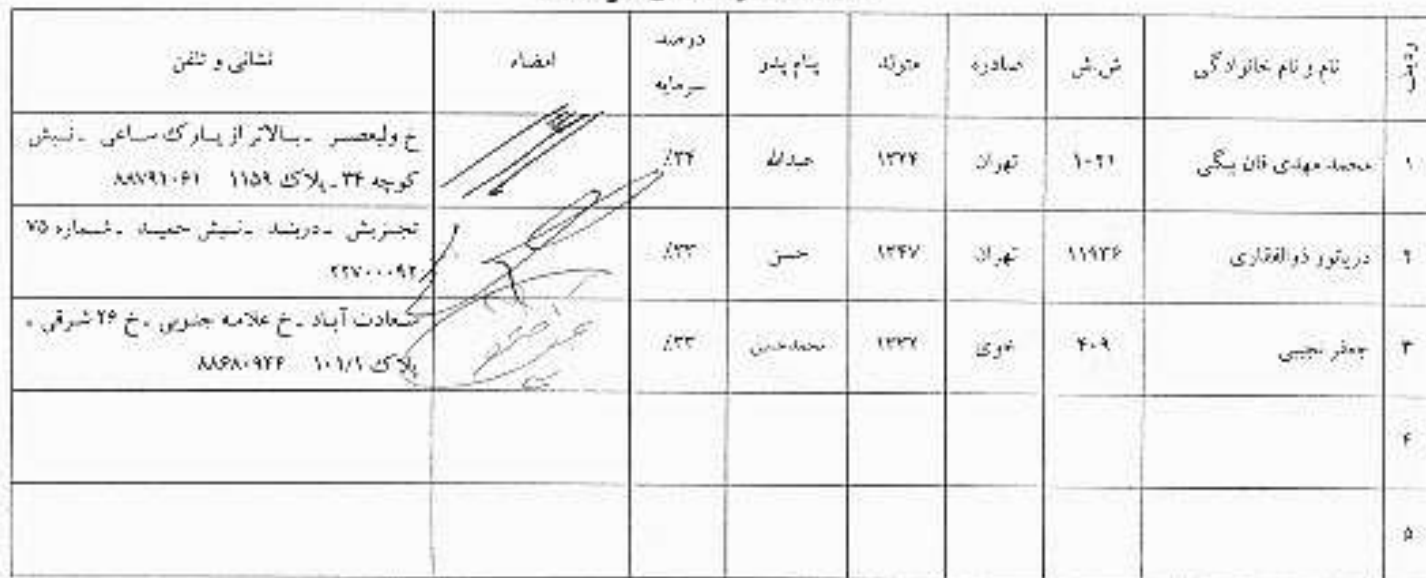 ردیف نام و نام خانوادگی ش.ش صادره متولد بنام پدر درصد سرمایه امضاء نشانی و تلفن
۱ محمد مهدی فان بیگی ۱۰۲۱ تهران ۱۳۲۴ عبدالله ٪۳۴ خ ولیعصر - بالاتر از پارک ساعی - نبش
کوچه ۳۴ - پلاک ۱۱۵۹ ۸۸۷۹۱۰۶۱
۲ ذوالفقاری ۱۱۹۳۶ تهران ۱۳۴۷ حسن ٪۳۳ تجریش - دربند - نبش حمید - شماره ۷۵
۲۲۷۰۰۰۹۲
۳ جعفر نجیبی ۴۰۹ خوی ۱۳۳۷ ٪۳۳ سعادت آباد - خ علامه جنوبی - خ ۲۶ شرقی -
پلاک ۱۰۱/۱ ۸۸۶۸۰۹۲۶
۴
۵